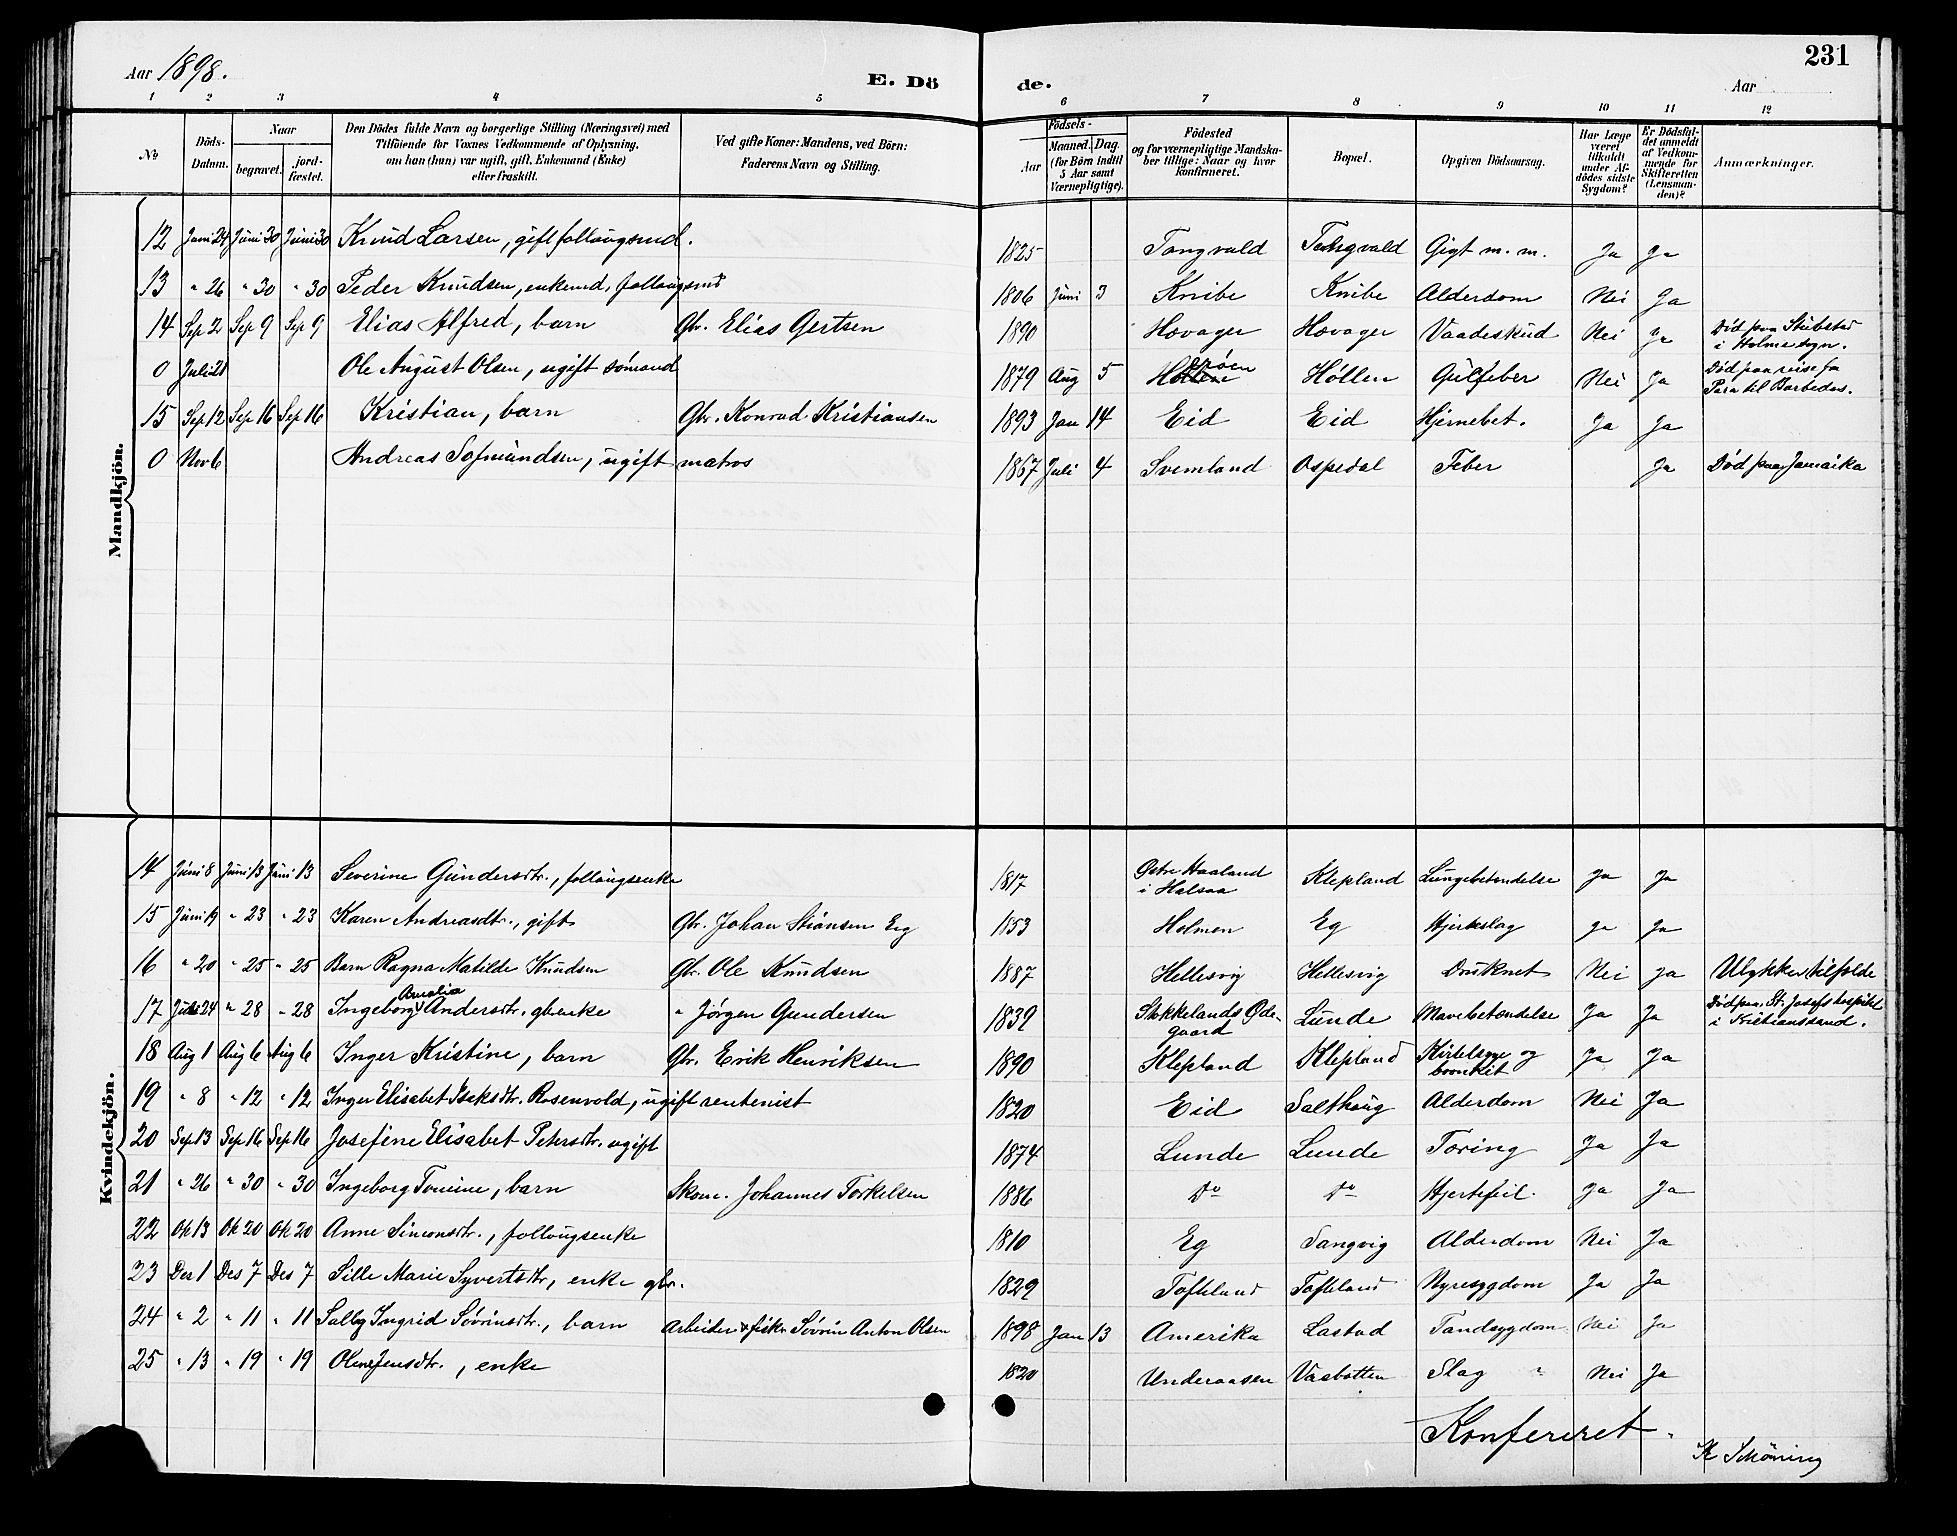 Aar 1898. E. Dö de. Aar 231
1 2 3 4 5 6 7 8 9 10 11 12
No Döds-Datum. Naar begravet. jord-fæstet. Den Dödes fulde Navn og borgerlige Stilling (Næringsvei) med Tilföiende for Voxnes Vedkommende af Oplysning, om han (hun) var ugift, gift, Enkemand (Enke) eller fraskilt. Ved gifte Koner: Mandens, ved Börn: Faderens Navn og Stilling. Födsels- Aar Maaned. Dag. (for Börn indtil 5 Aar samt Værnepligtige). Födested og for værnepligtige Mandskaber tillige: Naar og hvor konfirmeret. Bopæl. Opgiven Dödsaarsag. Har Læge været tilkaldt under Afdödes sidste Sygdom? Er Dödsfaldet anmeldt af Vedkommende for Skifteretten (Lensmanden)? Anmærkninger.
Mandkjön.
12 Juni 24 Juni 30 Juni 30 Knud Larsen, gift follaugsmd. 1825 Tangvald Tangvald Gigt m. m. Ja Ja
13 " 26 " 30 " 30 Peder Knudsen, enkemd. follaugsmd 1806 Juni 3 Knibe Knibe Alderdom Nei Ja
14 Sep 2 Sep 9 Sep 9 Elias Alfred, barn Gbr. Elias Gertsen 1890 Hovager Hovager Vaadeskud Nei Ja Död paa Stubstad
i Holme sogn.
0 Juli 21 Ole August Olsen, ugift sømand 1879 Aug 5 Høllen Høllen Gulfeber Nei Ja Död paa reise fra
Para til Barbedos.
15 Sep 12 Sep 16 Sep 16 Kristian, barn Gbr. Konrad Kristiansen 1893 Jan 14 Eid Eid Hjernebet. Ja Ja
0 Nov 6 Andreas Sofmundsen, ugift matros 1867 Juli 4 Svemland Ospedal Feber Ja Död paa Jamaika
Kvindekjön.
14 Juni 8 Juni 13 Juni 13 Severine Gundersdtr., follaugsenke 1817 Østre Haaland
i Halsaa Klepland Lungebetendelse Ja Ja
15 Juni 19 " 23 " 23 Karen Andreasdtr., gift Gbr. Johan Stiansen Eg 1853 Holmen Eg Hjerteslag Ja Ja
16 " 20 " 25 " 25 Barn Ragna Matilde Knudsen Gbr. Ole Knudsen 1887 Hellesvig Hellesvig Druknet Nei Ja Ulykkestilfælde
17 Juli 24 " 28 " 28 Ingeborg Amalia Andersdtr. gbrenke " Jörgen Gundersen 1839 Stokkelands Øde-
gaard Lunde Mavebetendelse Ja Ja Död paa St. Josefs hospital
i Kristianssand.
18 Aug 1 Aug 6 Aug 6 Inger Kristine, barn Gbr. Erik Henriksen 1890 Klepland Klepland Kirtelsyge og
bronkit Ja Ja
19 " 8 " 12 " 12 Inger Elisabet Isaksdtr. Rosenvold, ugift rentenist 1820 Eid Salthaug Alderdom Nei Ja
20 Sep 13 Sep 16 Sep 16 Josefine Elisabet Petersdtr. ugift 1874 Lunde Lunde Tæring Ja Ja
21 " 26 " 30 " 30 Ingeborg Tomine, barn Skom. Johannes Torkelsen 1886 Do Do Hjertefeil. Ja Ja
22 Ok 13 Ok 20 Ok 20 Anne Simonsdtr., follaugsenke 1810 Eg Sangvig Alderdom Nei Ja
23 Des 1 Des 7 Des 7 Sille Marie Syvertsdtr, enke gbr. 1829 Tofteland Tofteland Nyresygdom Ja Ja
24 " 2 " 11 " 11 Salby Ingrid Sövrinsdtr., barn Arbeider & fisker Sövrin Anton Olsen 1898 Jan 13 Amerika Lastad Tandsygdom Nei Ja
25 " 13 " 19 " 19 Olene Jensdtr., enke 1820 Underaasen Vasbotten Slag Nei Ja
Konfereret.
K Schöning